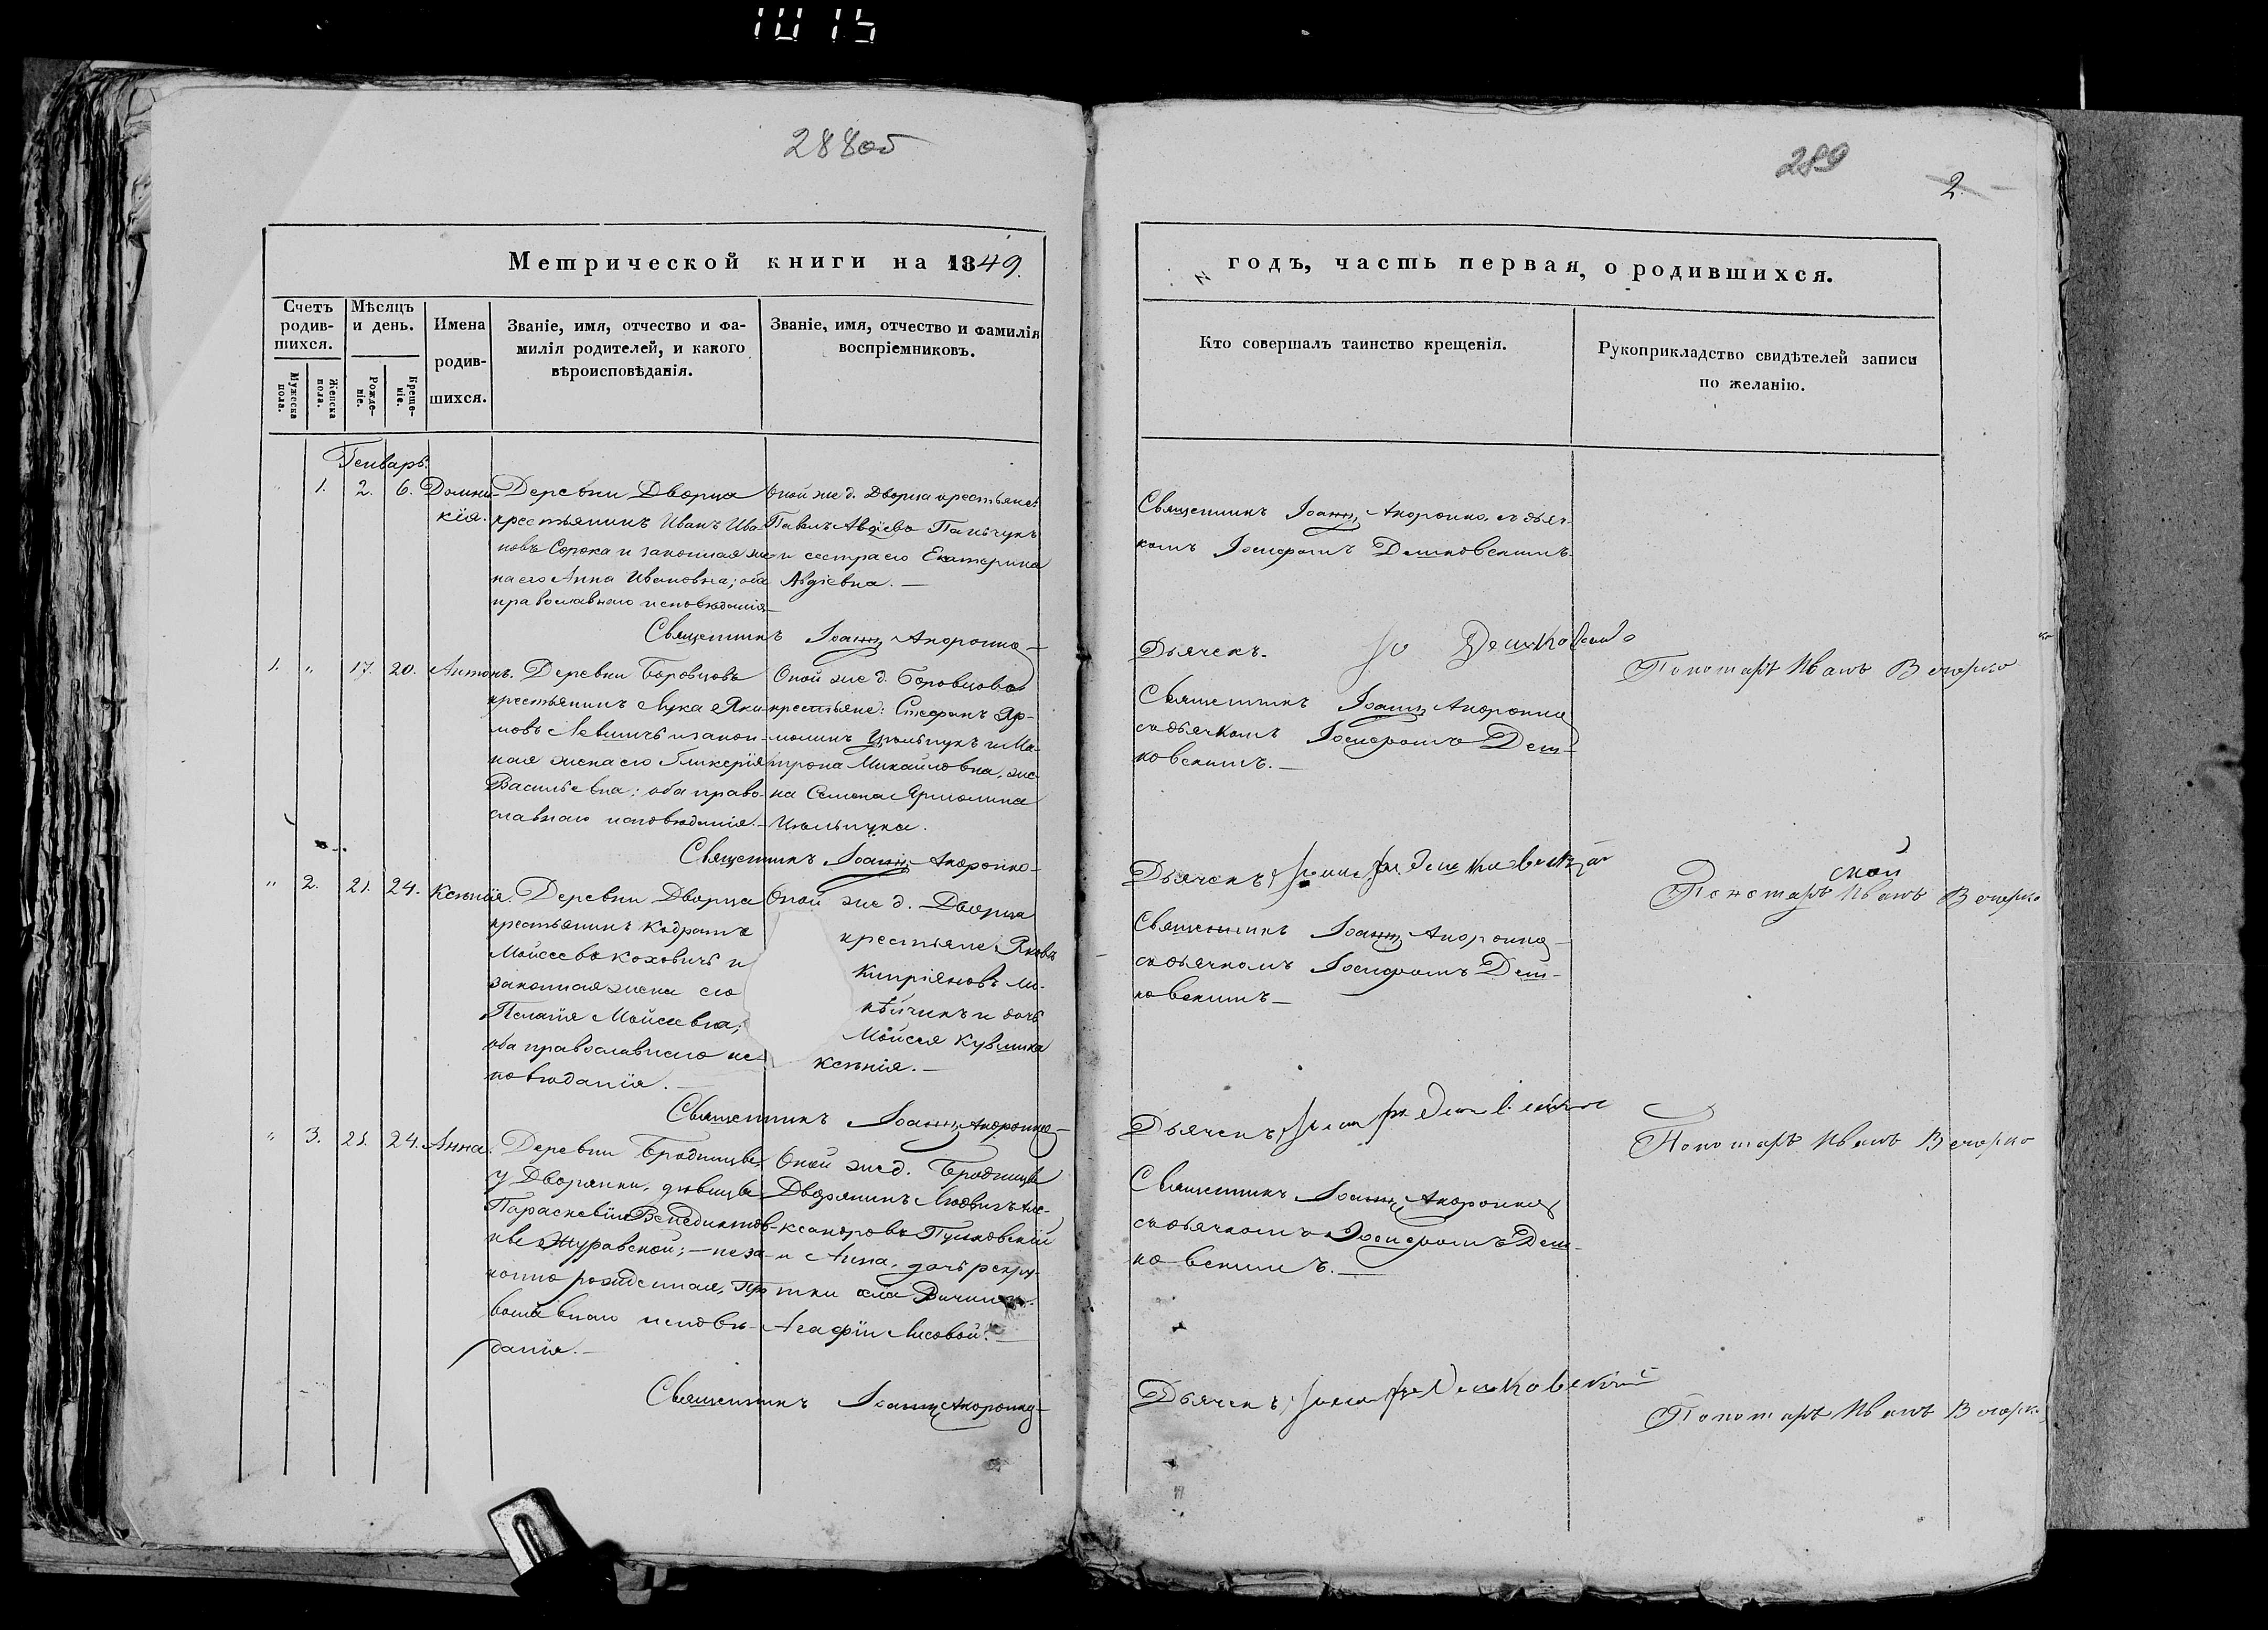 1015
288об
289
2.
Метрической книги на 1849.
годъ, часть первая, о родившихся.
Счетъ родив-шихся.
Мужеска пола.
Женска пола.
Мѣсяцъ и день.
Рожде-ніе.
Креще-ніе.
Имена
родив-
шихся.
Званіе, имя, отчество и фа-
милія родителей, и какого
вѣроисповѣданія.
Званіе, имя, отчество и фамилія
воспріемниковъ.
Кто совершалъ таинство крещенія.
Рукоприкладство свидѣтелей записи
по желанію.
Генварь.
" 1. 2. 6. Домни-
кія.
Деревни Дворца
крестьянинъ Иванъ Ива-
новъ Сорока и законная же-
на его Анна Ивановна; оба
православнаго исповѣданія
Оной же д. Дворца крестьяне:
Павелъ Авдіевъ Панчукъ
и сестра его Екатерина
Авдіевна.
Священникъ Іоаннъ
Священникъ Іоаннъ съ дьяч-
комъ Іосифомъ Дешковскимъ.
Дьячекъ
Пономарь Иванъ Вечорко
1. " 17. 20. Антонъ.
Деревни Боровцовъ
крестьянинъ Лука Яки-
мовъ Левшичъ и закон-
ная жена его Гликерія
Васильевна; оба право-
славнаго исповѣданія.
Оной же д. Боровцовъ
крестьяне: Стефанъ Яр-
молинъ Цюльпукъ и Ма-
трона Михайловна, же-
на Семена Ярмолина
Цюльпука.
Священникъ Іоаннъ
Священникъ Іоаннъ
съ дьячкомъ Іосифомъ Деш-
ковскимъ.
Дьячекъ
ской
Пономарь Иванъ Вечорко
" 2. 21. 24. Ксенія.
Деревни Дворца
крестьянинъ Кодратъ
Мойсеевъ Коховичъ и
законная жена его
Пелагія Мойсеевна;
оба православнаго ис-
повѣданія.
Оной же д. Дворца
крестьяне: Яковъ
Кипріяновъ Ми-
кѣйчикъ и дочь
Мойсея Кувшика
Ксенія.
Священникъ Іоаннъ
Священникъ Іоаннъ
съ дьячкомъ Іосифомъ Деш-
ковскимъ
Дьячекъ
Пономарь Иванъ Вечорко
" 3. 21. 24. Анна.
Деревни Бродницы
у Дворянки, дѣвицы
Параскевіи Венедиктов-
ны Журавской; — неза-
конно рожденная, Пра-
вославнаго исповѣ-
данія.
Оной же д. Бродницы
Дворянинъ Людвигъ Але-
ксандровъ
и Анна, дочь рекру-
тки
Агафіи Лисовой.
Священникъ Іоаннъ
Священникъ Іоаннъ
съ дьячкомъ Іосифомъ Деш-
ковскимъ.
Дьячекъ
Пономарь Иванъ Вечорко